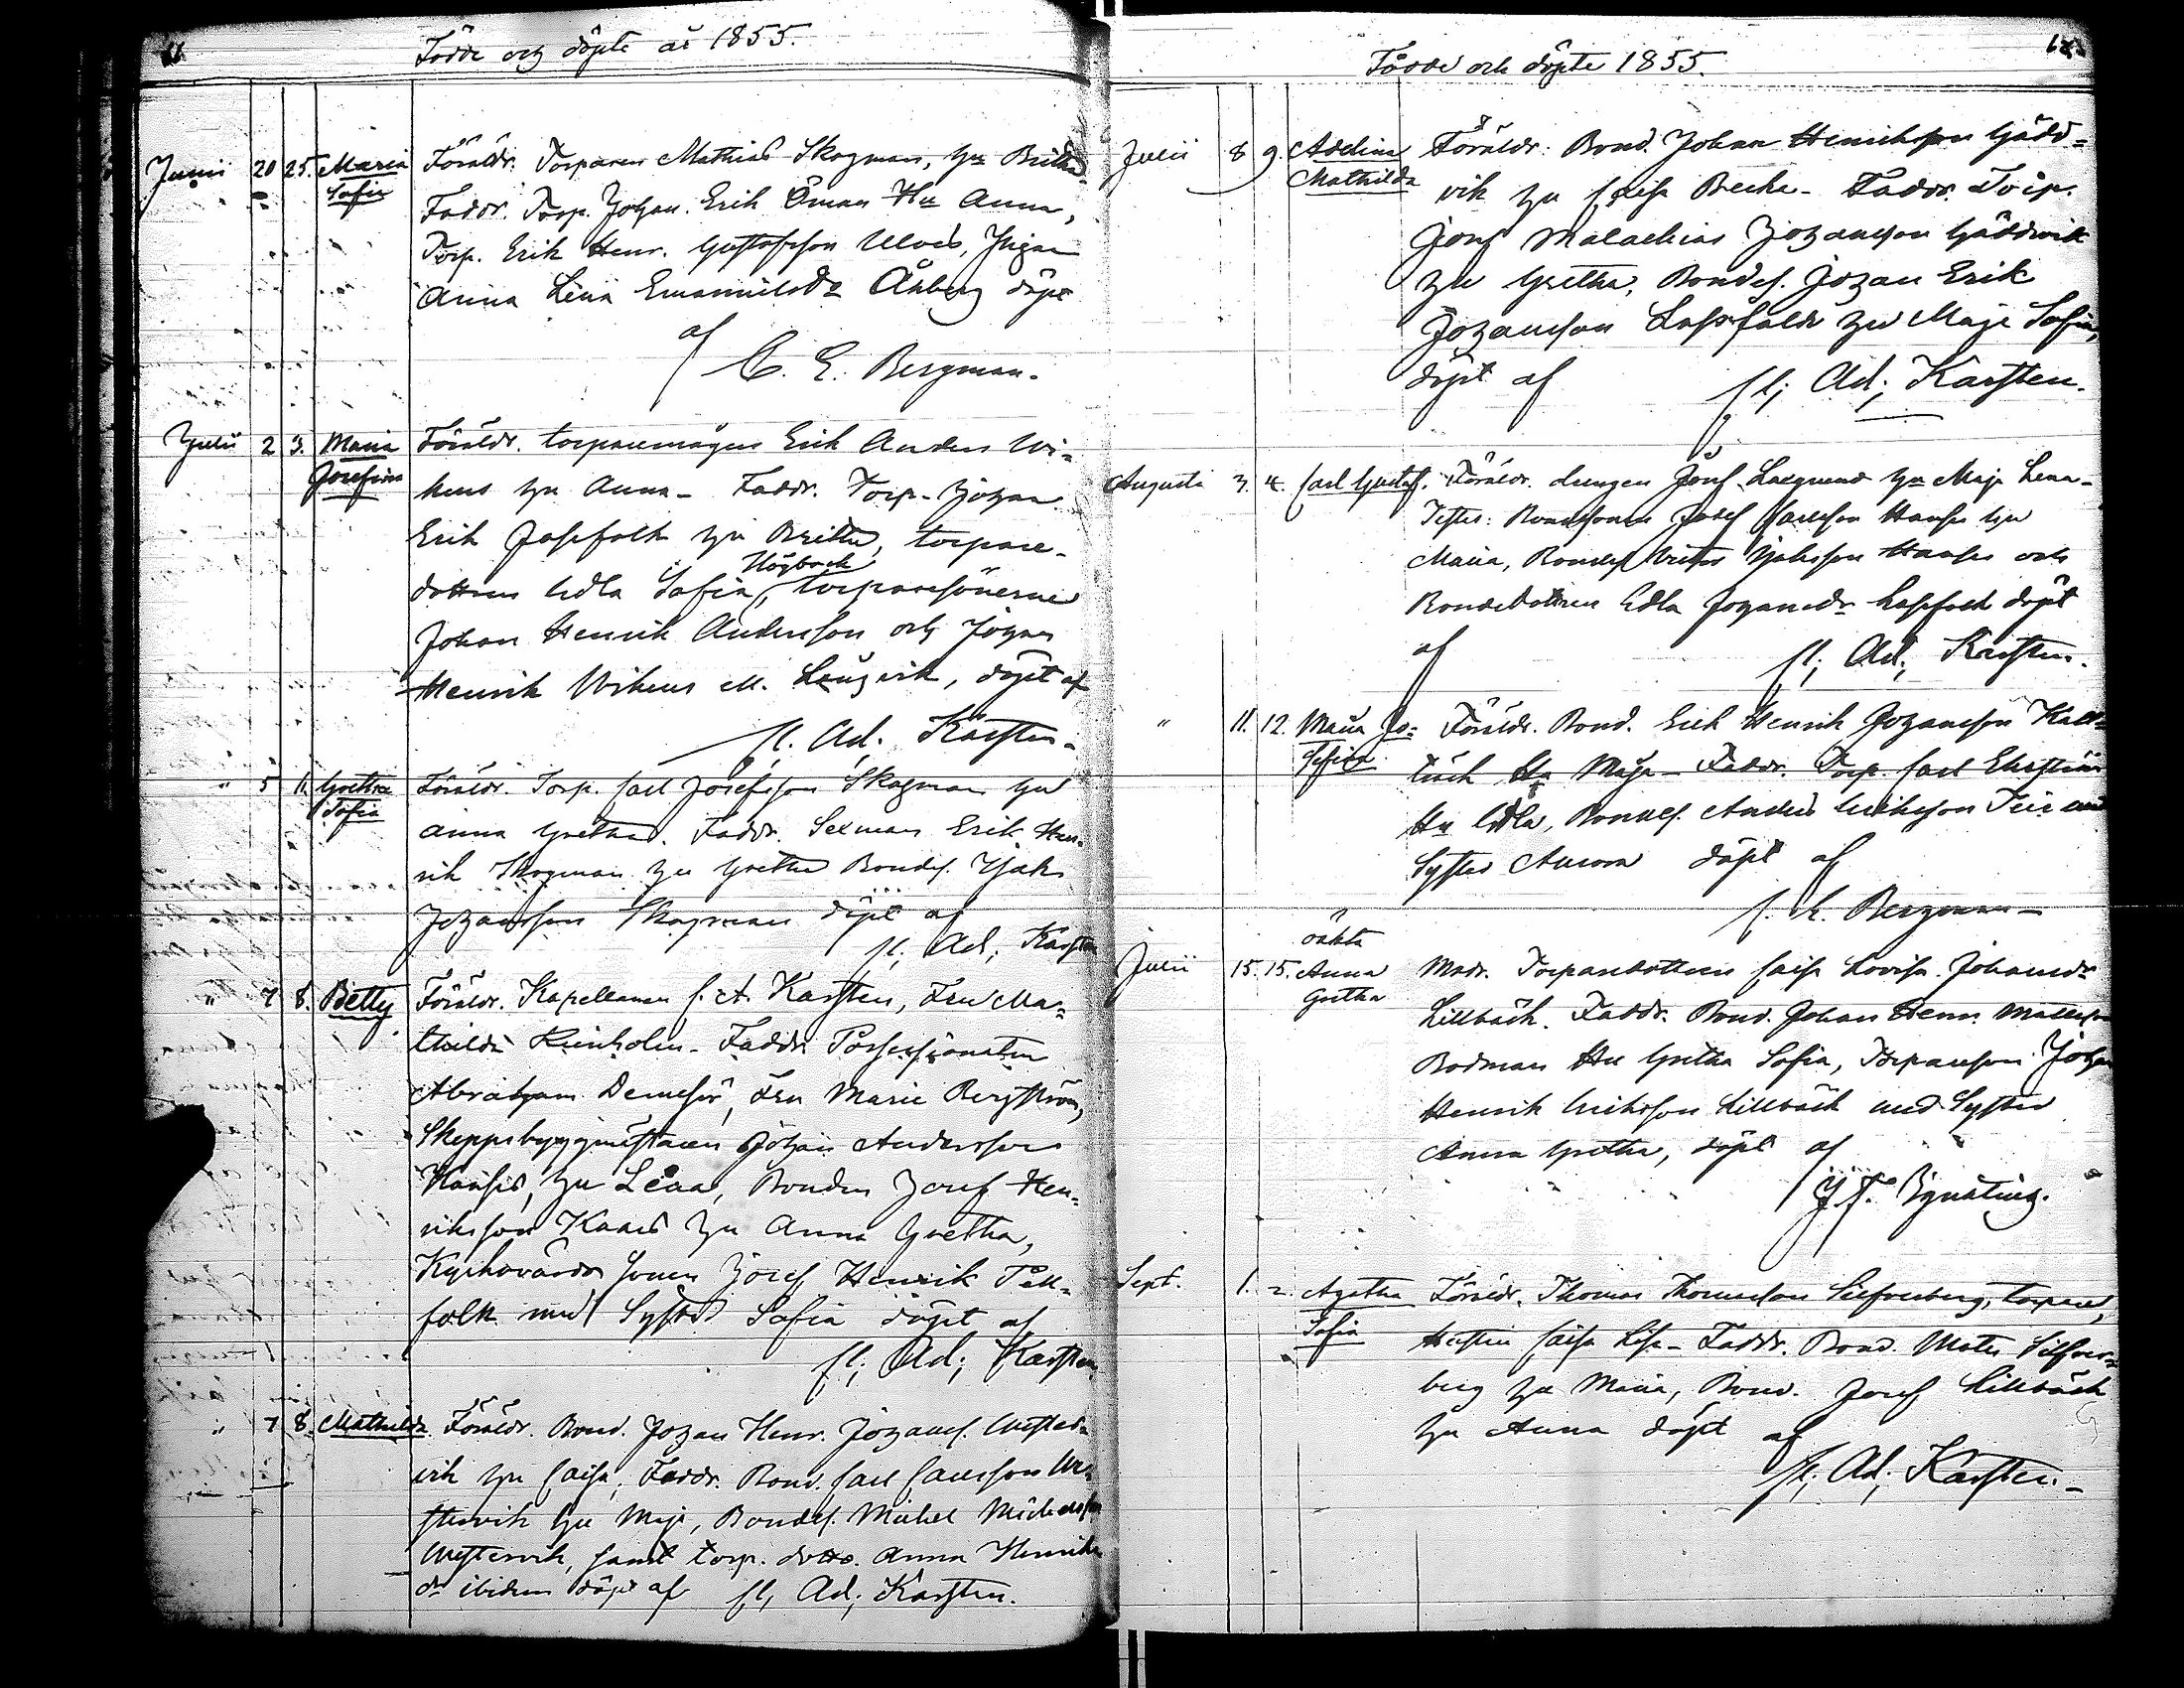 Födde och döpte år 1855.
Junii 20 25. Maria Föräldr. Torparen Mathias Skogman, hu Britha
Sofia Faddr. Torp. Johan Erik Öman Hu Anna,
Torp. Erik Henr. Gustafsson Ulves, Pigan
Anna Lena Emanuelsdr Åhberg döpt
af
C. E. Bergman.
Julii 2 3. Maria Föräldr. torparemågen Erik Anders Wi-
Josefina kens hu Anna - Faddr. Torp. Johan
Erik hu Britha, torpare-
Högback
dottren Edla Sofia, torparesönerne
Johan Henrik Andersson och Johan
Henrik Wikens M. Långvik, döpt af
Ad. Karsten.
" 5 11. Gretha Föräldr. Torp. Carl Josefsson Skogman hu
Sofia Anna Gretha. Faddr. Sexman Erik Hen-
rik Skogman hu Gretha Bondes.
Johansson Skogman döpt af
Ad. Karsten
" 7 8. Betty Föräldr. Kapellanen C. A. Karsten, Fru Ma-
thilda Faddr. Possessionaten
Abraham Fru Marie Bergström,
Skeppsbyggmästaren Johan Andersson
hu Lena, Bonden Josef Hen-
riksson hu Anna Gretha,
Kyrkovärds sonen Josef Henrik Pell-
folk med Syster Sofia döpt af
Ad. Karsten
" 7 8. Mathilda Föräldr. Bond. Johan Henr. Johans. Wester-
vik hu Caisa, Faddr. Bond. Carl Carlsson We-
stervik hu Maja, Bondes. Michel Michelsson
Westervik, samt torp. dottr. Anna Henriks
dr ibidem döpt af Ad. Karsten.
Födde och döpte 1855.
Julii 8 9. Adelina Föräldr. Bond. Johan Henriksson Gädd-
Mathilda vik hu Caisa Faddr. Torp.
Malachias Johansson Gäddvik
hu Gretha, Bondes. Johan Erik
Johansson Lassfolk hu Maja Sofia,
döpt af Ad. Karsten.
Augusti 3. 4. Carl Gustaf. Föräldr. Josef hu Maja Lena -
Testes: Bondesonen Josef Carlsson hu
Maria, Bondes och
Bondedottren Edla Johansdr Lassfolk döpt
af Ad. Karsten.
" 11. 12. Maria Jo- Föräldr. Bond. Erik Henrik Johansson Kall-
sefina bäck Hu Maja - Faddr. Torp. Carl
Hu Edla, Bondes. Anders Eriksson med
Syster Aurora döpt af
C. E. Bergman -
oäkta
Julii 15. 15. Anna Modr. Torparedottren Caisa Lovisa Johansdr
Gretha Lillbäck. Faddr. Bond. Johan Henr. Mattsson
Bodman Hu Gretha Sofia, Torpareson Johan
Henrik Eriksson Lillbäck med Syster
Anna Gretha, döpt af
Sept. 1. 2. Agatha Föräldr. Thomas Thomasson Silfverberg, torpare,
Sofia Hustru Caisa Lisa - Faddr. Bond. Mats Silfver-
berg hu Maria, Bond. Josef Lillbäck
hu Anna döpt af
Ad. Karsten. -